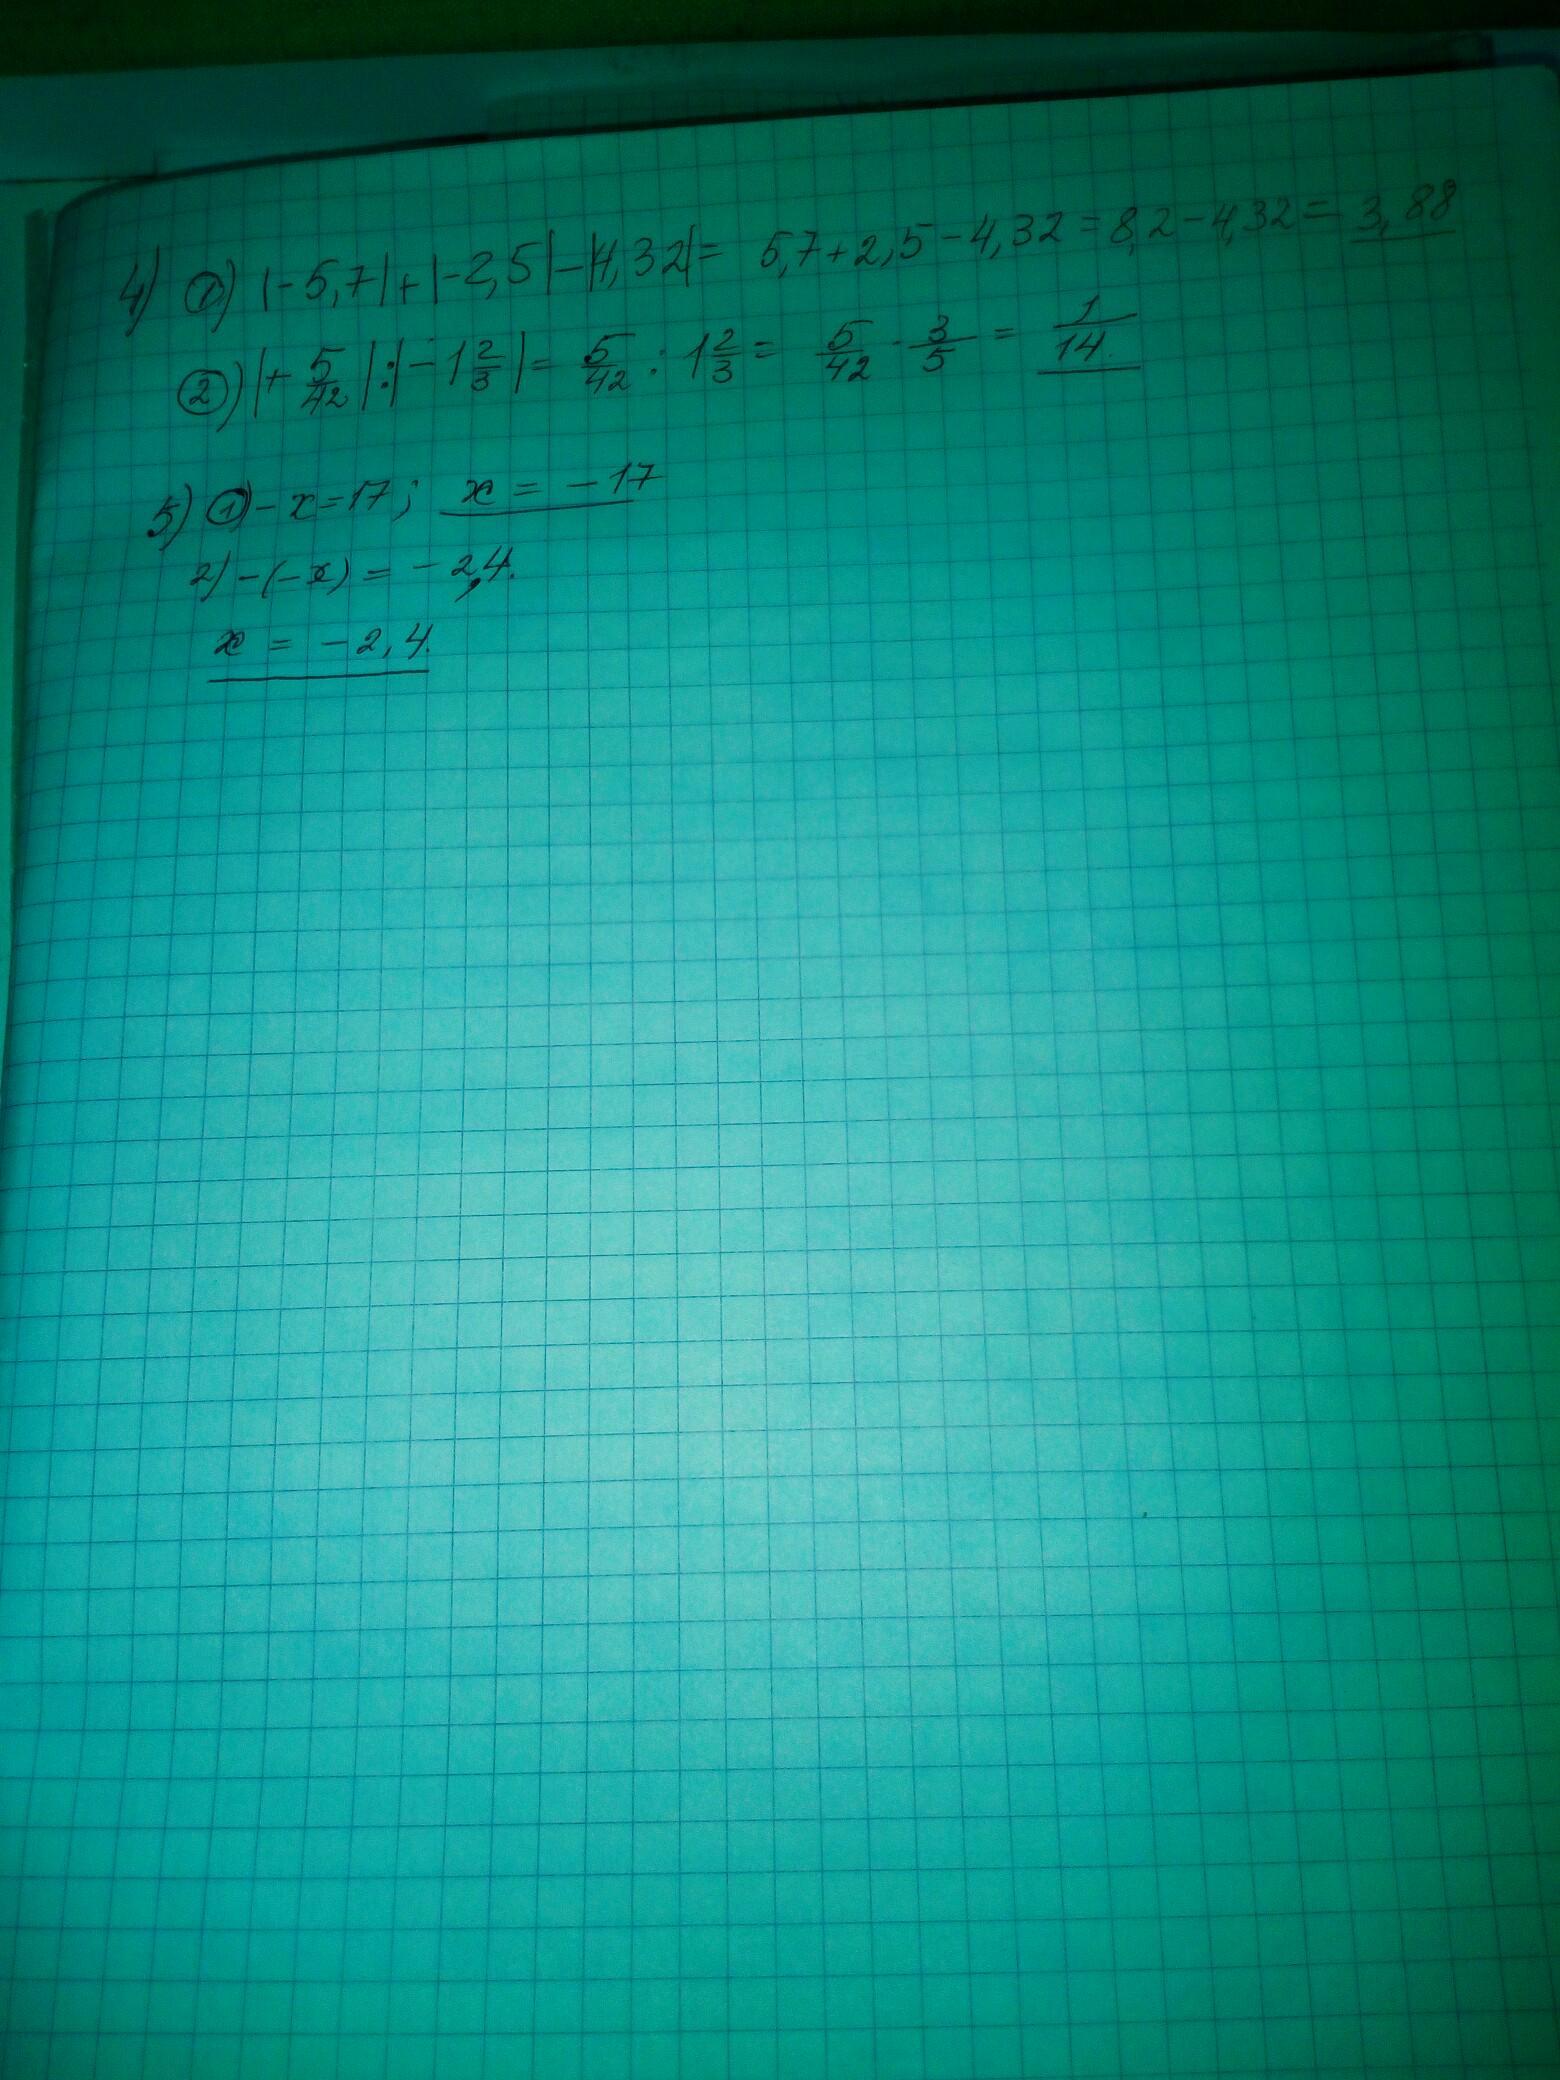 4) 1) |-5,7|+|-2,5|-|4,32|= 5,7+2,5-4,32=8,2-4,32= 3,88
2) |+ 5/42|:|-1 2/3|= 5/42 : 1 2/3 = 5/42 · 3/5 = 1/14.
5) 1) -x=17; x = -17
2) -(-x) = -2,4.
x = -2,4.